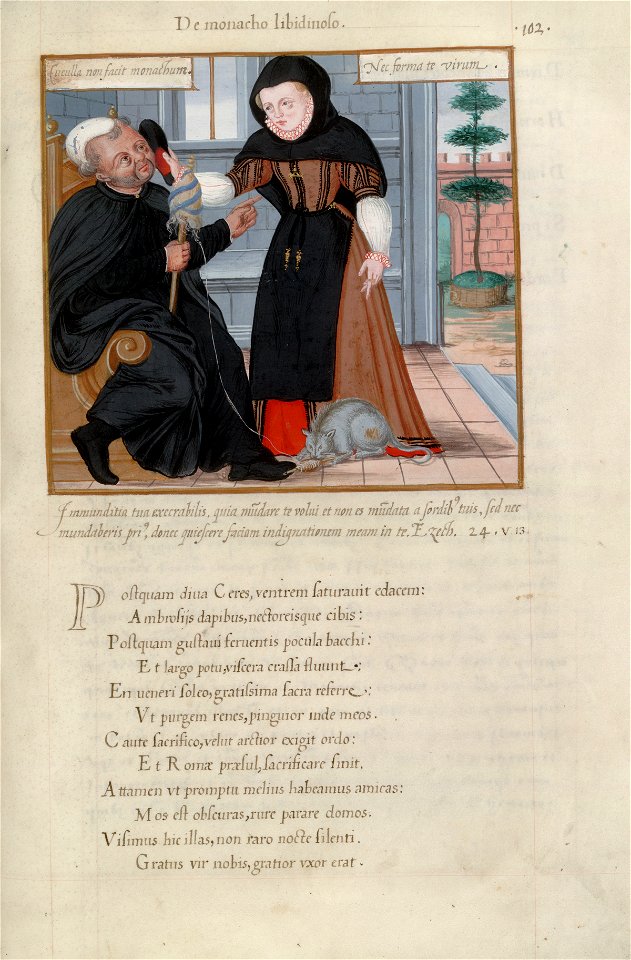 De monacho libidinoso.
·102·
Cuculla non facit monachum.
Nec forma te virum.
Immunditia tua execrabilis, quia mūdare te volui et non es mūdata a sordibꝰ tuis, sed nec
mundaberis priꝰ, donec quiescere faciam indignationem meam in te. Ezech. 24. v 13.
Postquam diua Ceres, ventrem saturauit edacem:
Ambrosijs dapibus, nectoreisque cibis:
Postquam gustaui feruentis pocula bacchi:
Et largo potu, viscera crassa fluunt.:
En veneri soleo, gratissima sacra referre.:
Vt purgem renes, pinguior inde meos.
Caute sacrifico, velut arctior exigit ordo:
Et Romæ præsul, sacrificare sinit.
Attamen vt promptu melius habeamus amicas:
Mos est obscuras, rure parare domos.
Visimus hic illas, non raro nocte silenti.
Gratus vir nobis, gratior vxor erat.